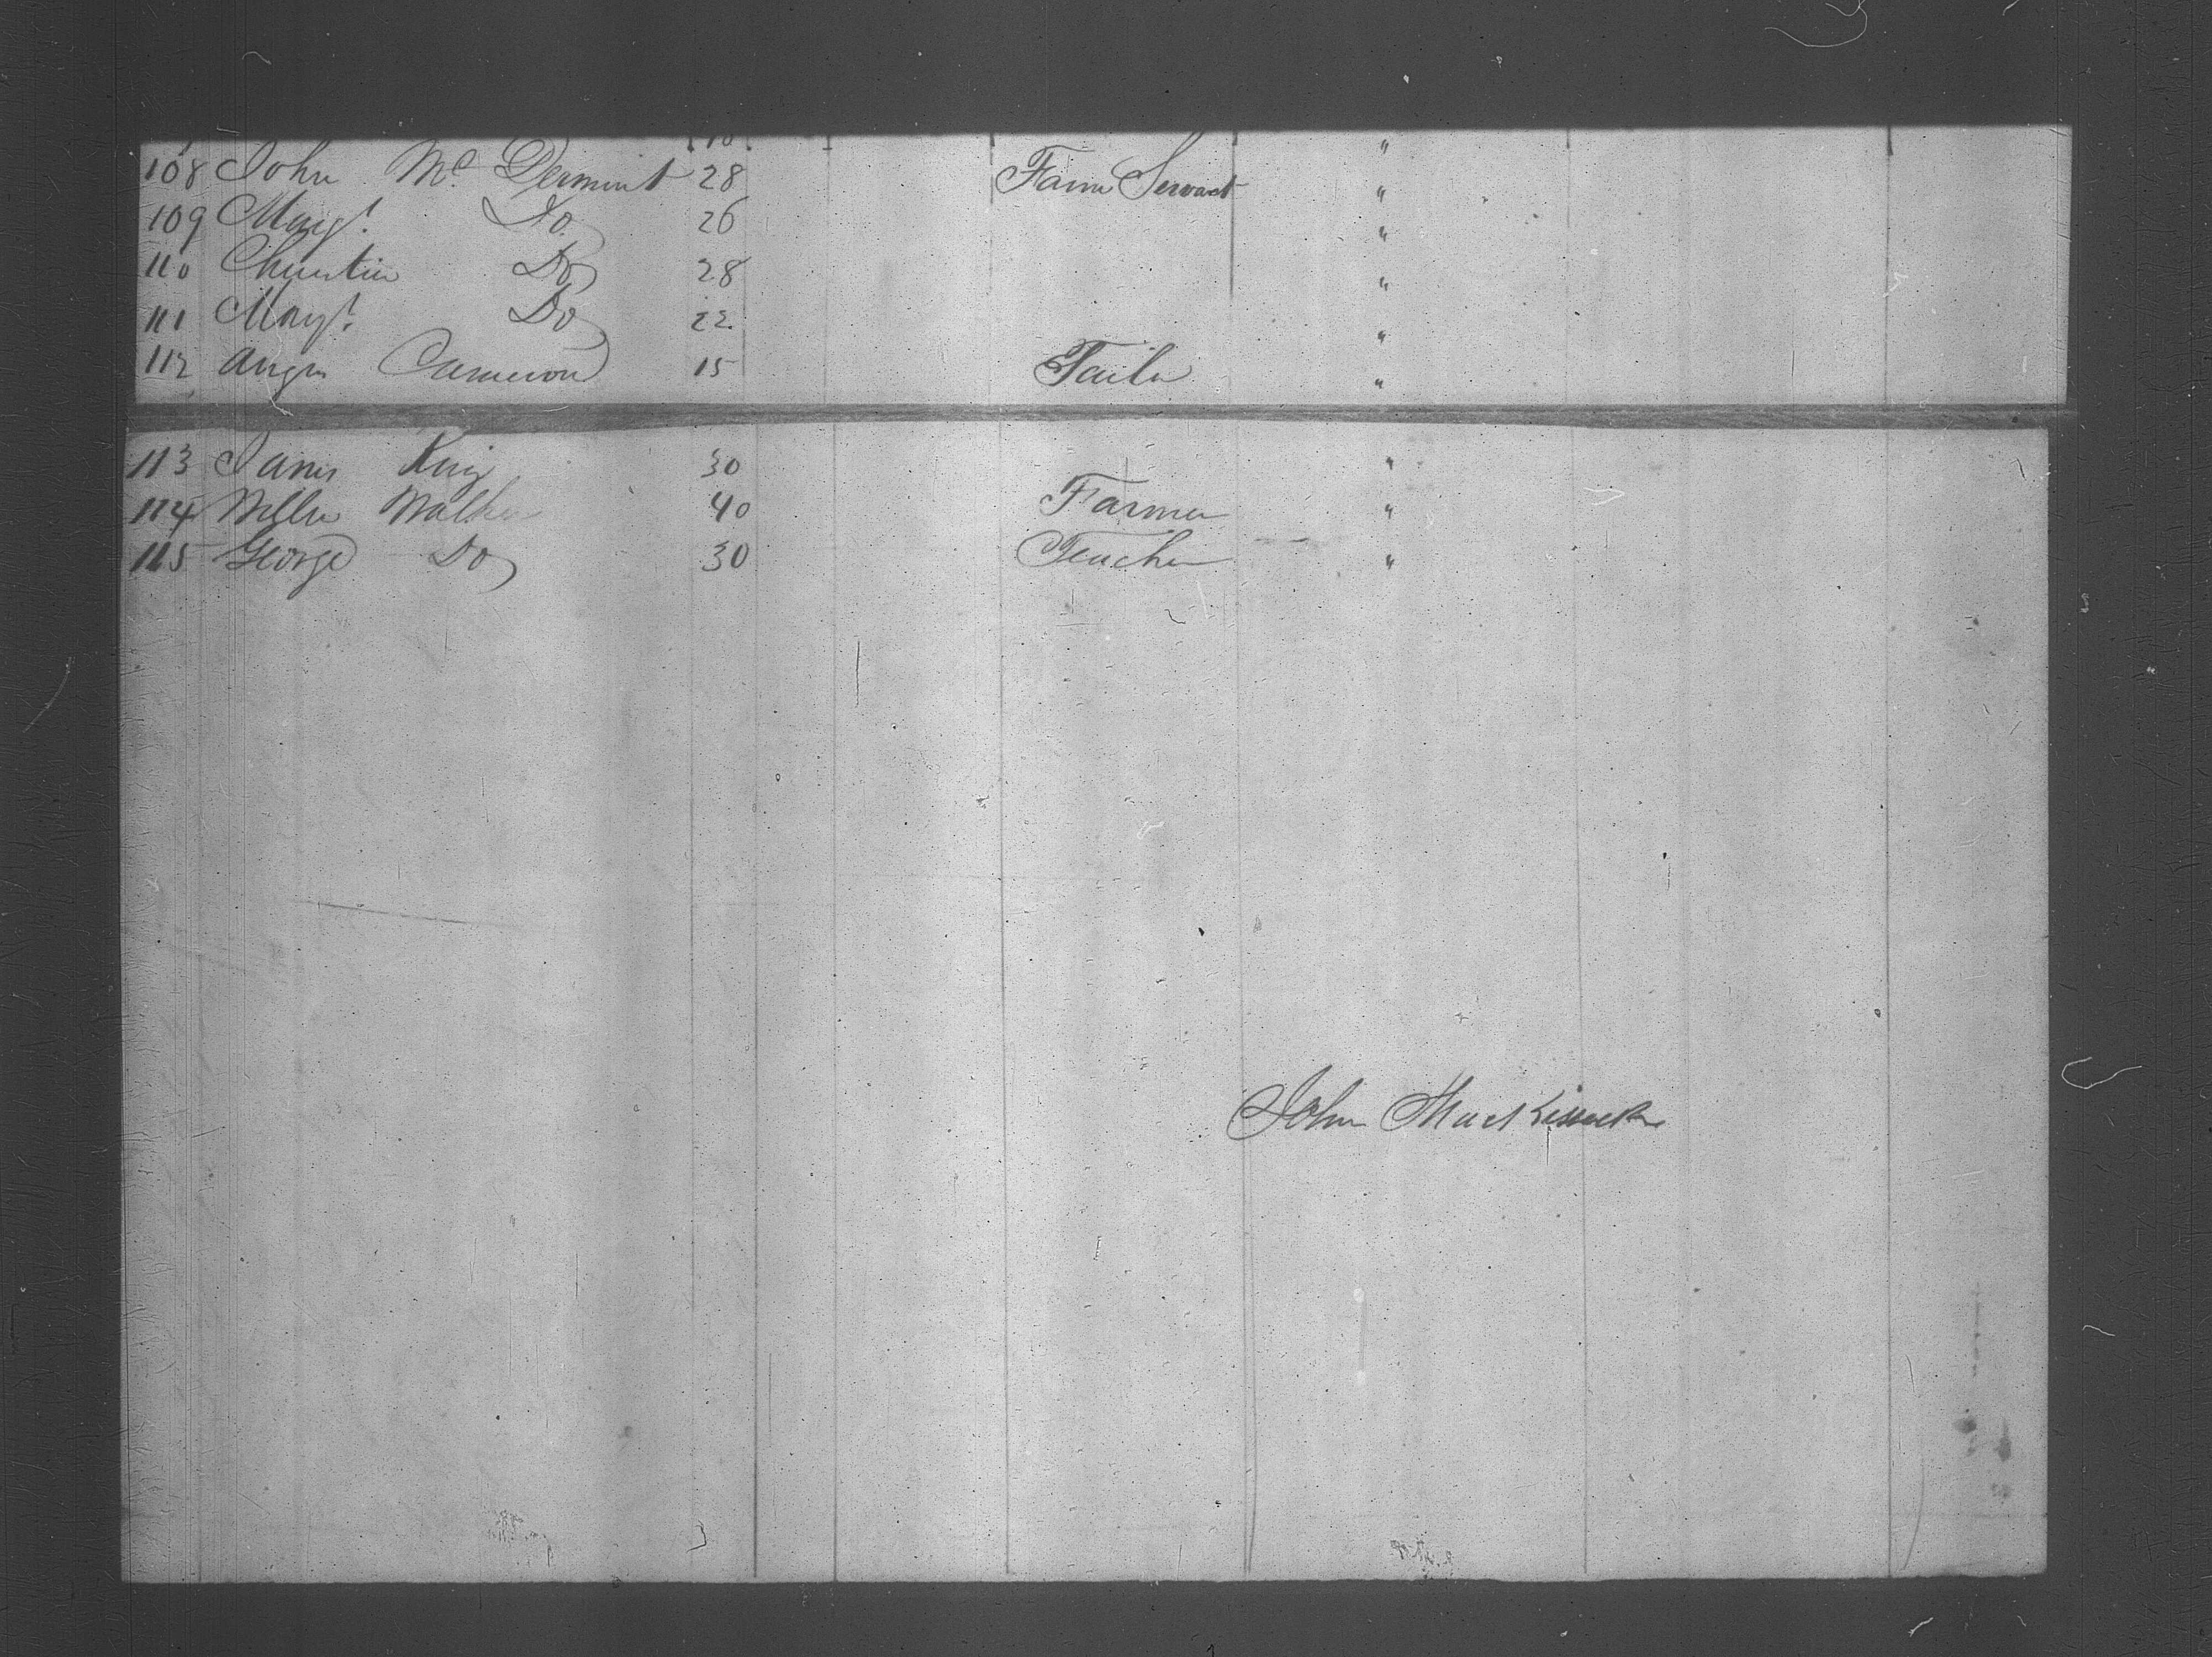 108 John Mc Dermint 28 Farm Servant "
109 Margt. Do 26 "
110 Christin Do 28 "
111 Margt. Do 22 "
112 Angus Cameron 15 Tailor "
113 James King 30 "
114 Walker 40 Farmer "
115 George Do 30 Teacher "
John